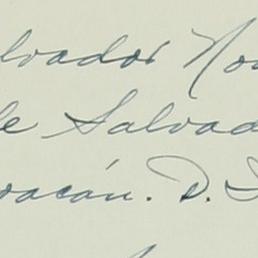 lvador No
de Salvad
oacán. D. F